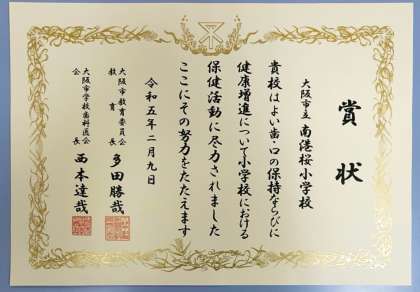 賞状
大阪市立 南港桜小学校
貴校はよい歯・口の保持ならびに
健康増進について小学校における
保健活動に尽力されました
ここにその努力をたたえます
令和五年二月九日
大阪市教育委員会
教育長 多田勝哉
大阪市学校歯科医会
会長 西本達哉